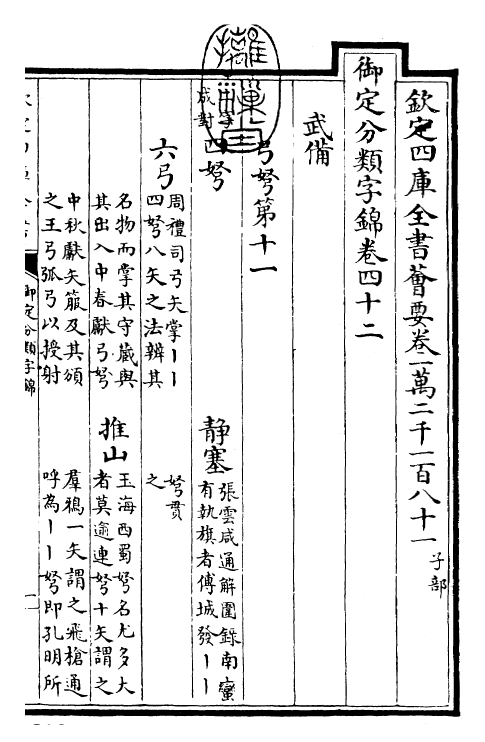 欽定四庫全書薈要卷一萬二千一百八十一 子部
御定分類字錦卷四十二
武備
弓弩第十一
成對
四弩
静塞
張雲咸通解圍録南蠻
有執旗者傅城發丨丨
弩貫
之
六弓
周禮司弓矢掌丨丨
四弩八矢之法辨其
名物而掌其守藏與
其出入中春獻弓弩
中秋獻矢箙及其頒
之王弓弧弓以授射
推山
玉海西蜀弩名尤多大
者莫逾連弩十矢謂之
羣鴉一矢謂之飛槍通
呼為丨丨弩即孔明所
御定分類字錦